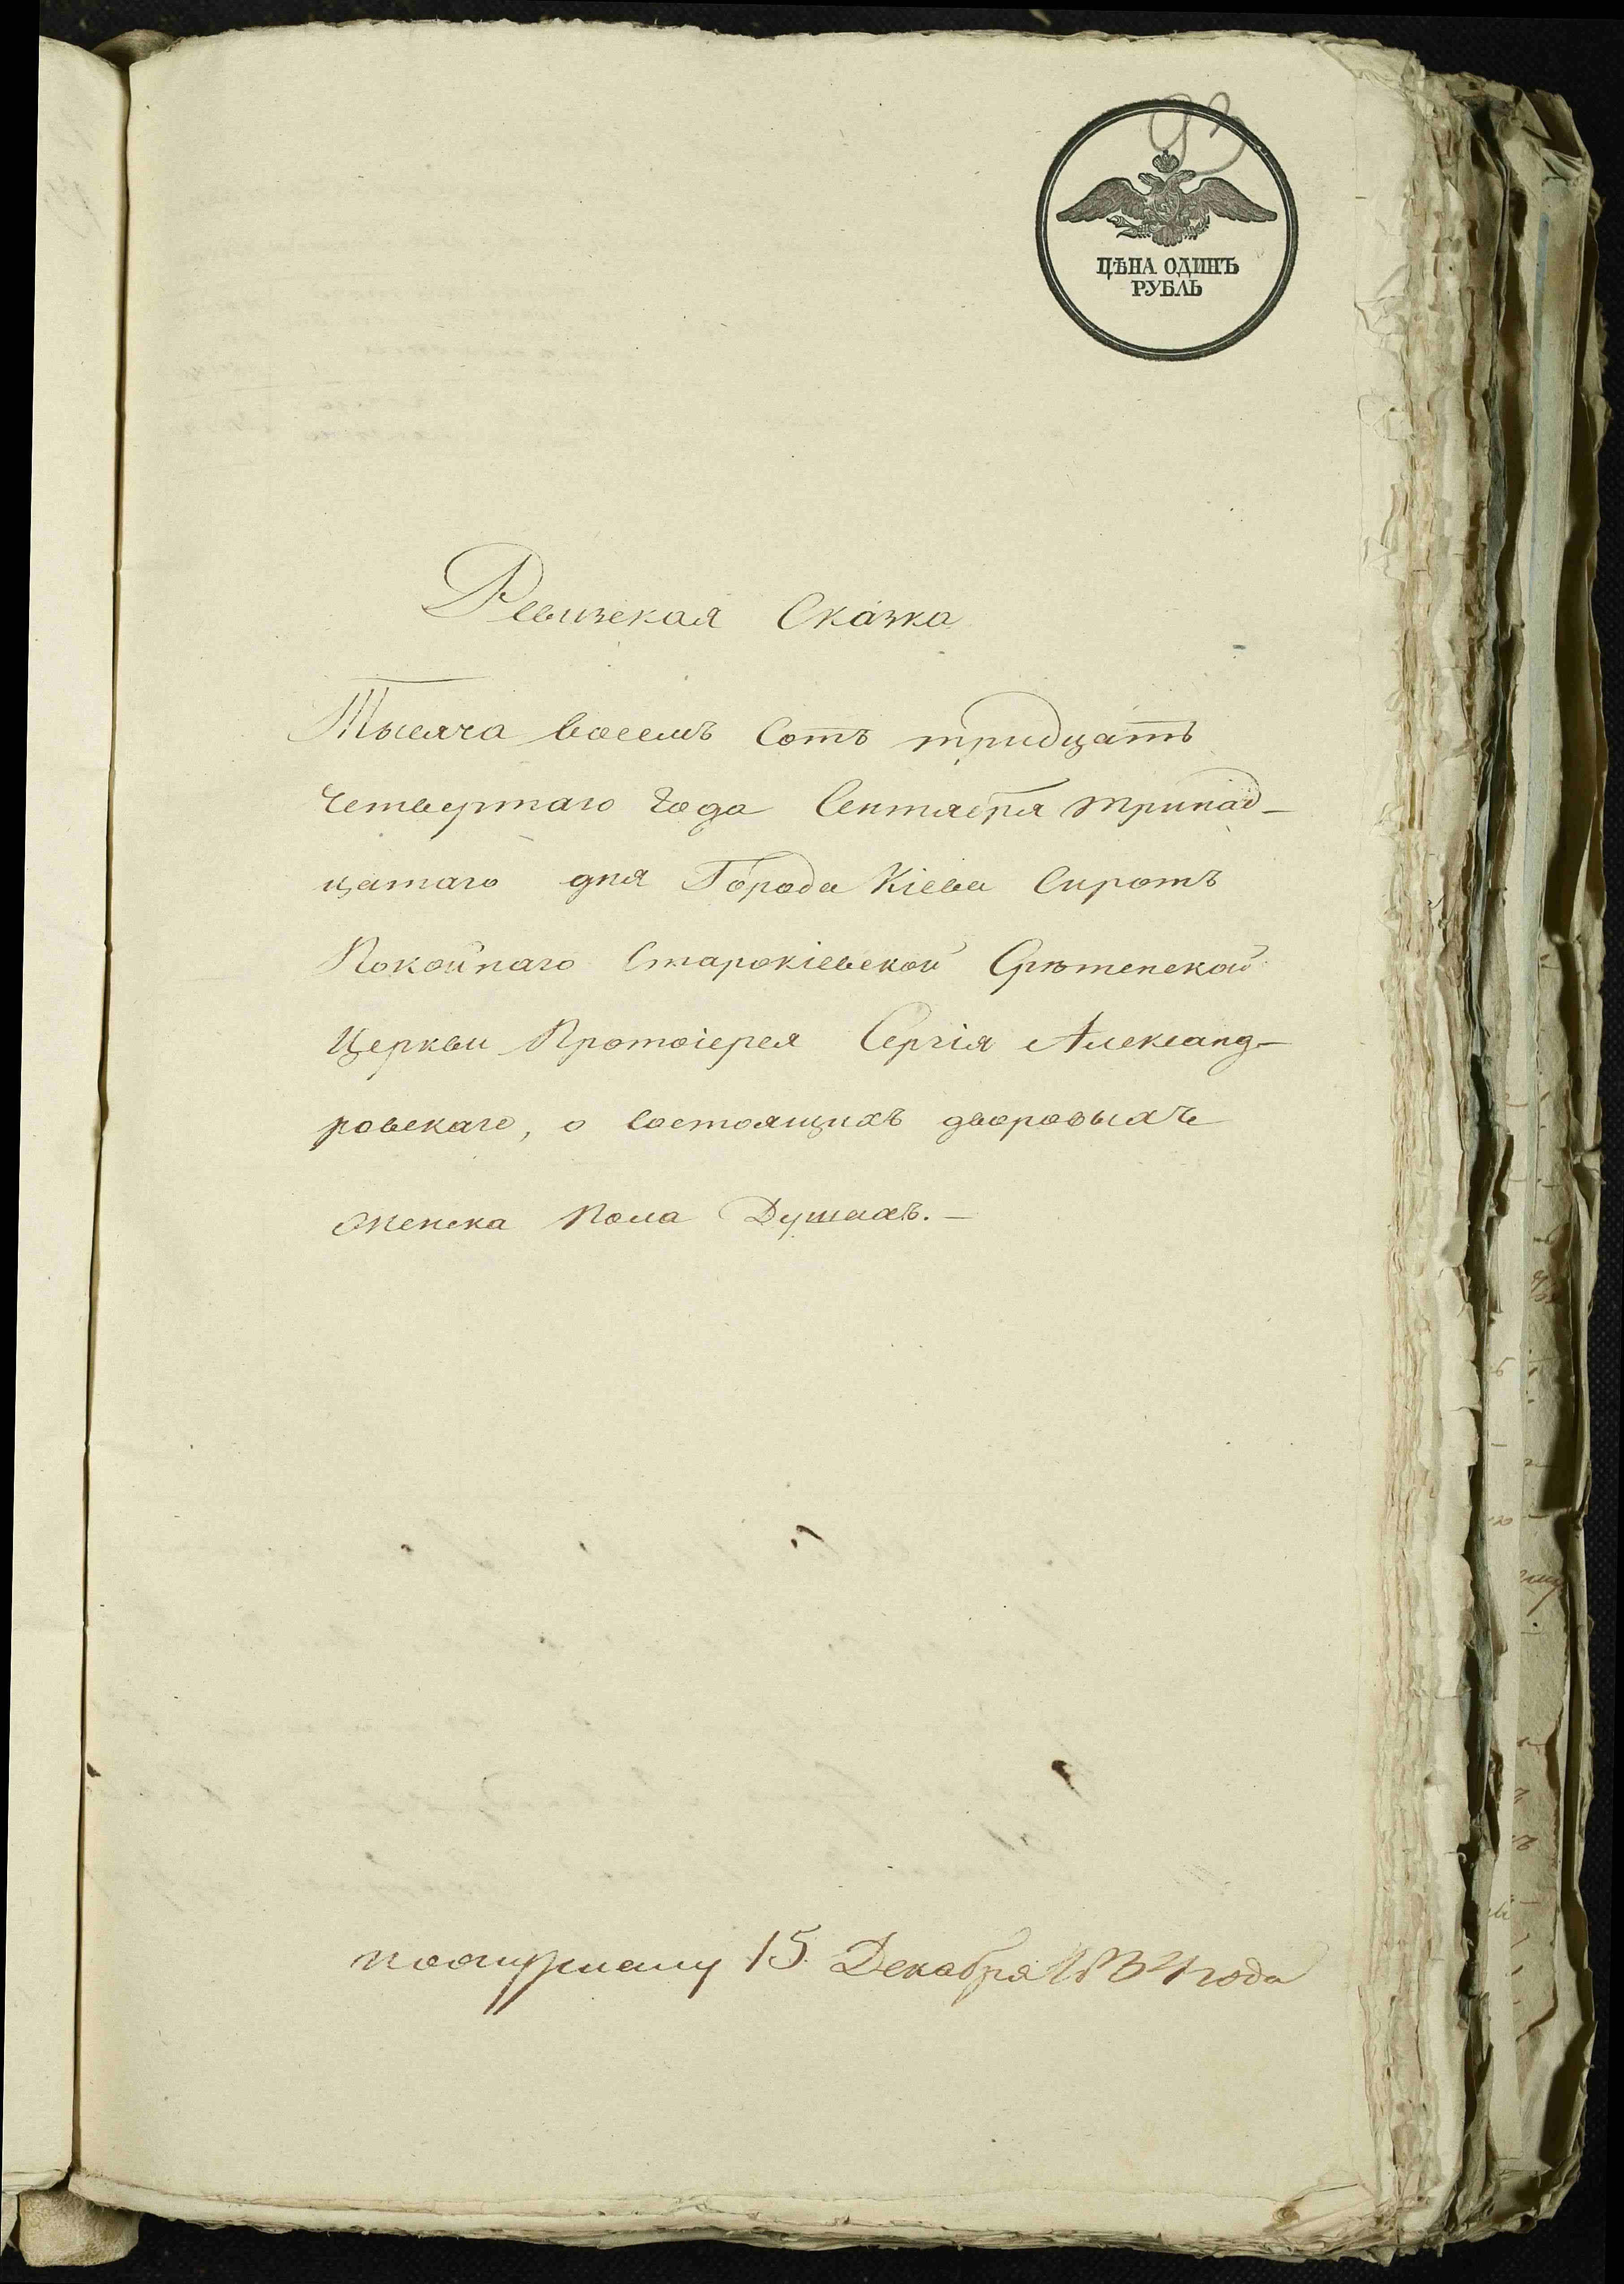 93
ЦѢНА ОДИНЪ
РУБЛЬ
Ревизская Сказка
Тысяча восемь Сотъ тридцать
четвертаго года Сентября тринад-
цатаго дня Города Кіева Сиротъ
Покойнаго Старокіевской Срѣтенской
Церкви Протоіерея Сергія Александ-
ровскаго, о состоящихъ дворовыхъ
женска пола Душахъ.-
15 Декабря 1834 года